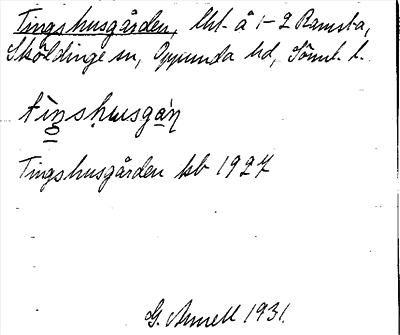 Tingshusgården, lht å 1-2 Ramsta,
Sköldinge sn, Oppunda hd, Söml. l.
tìngshusgán
Tingshusgården kb 1927
G. Arnell 1931.